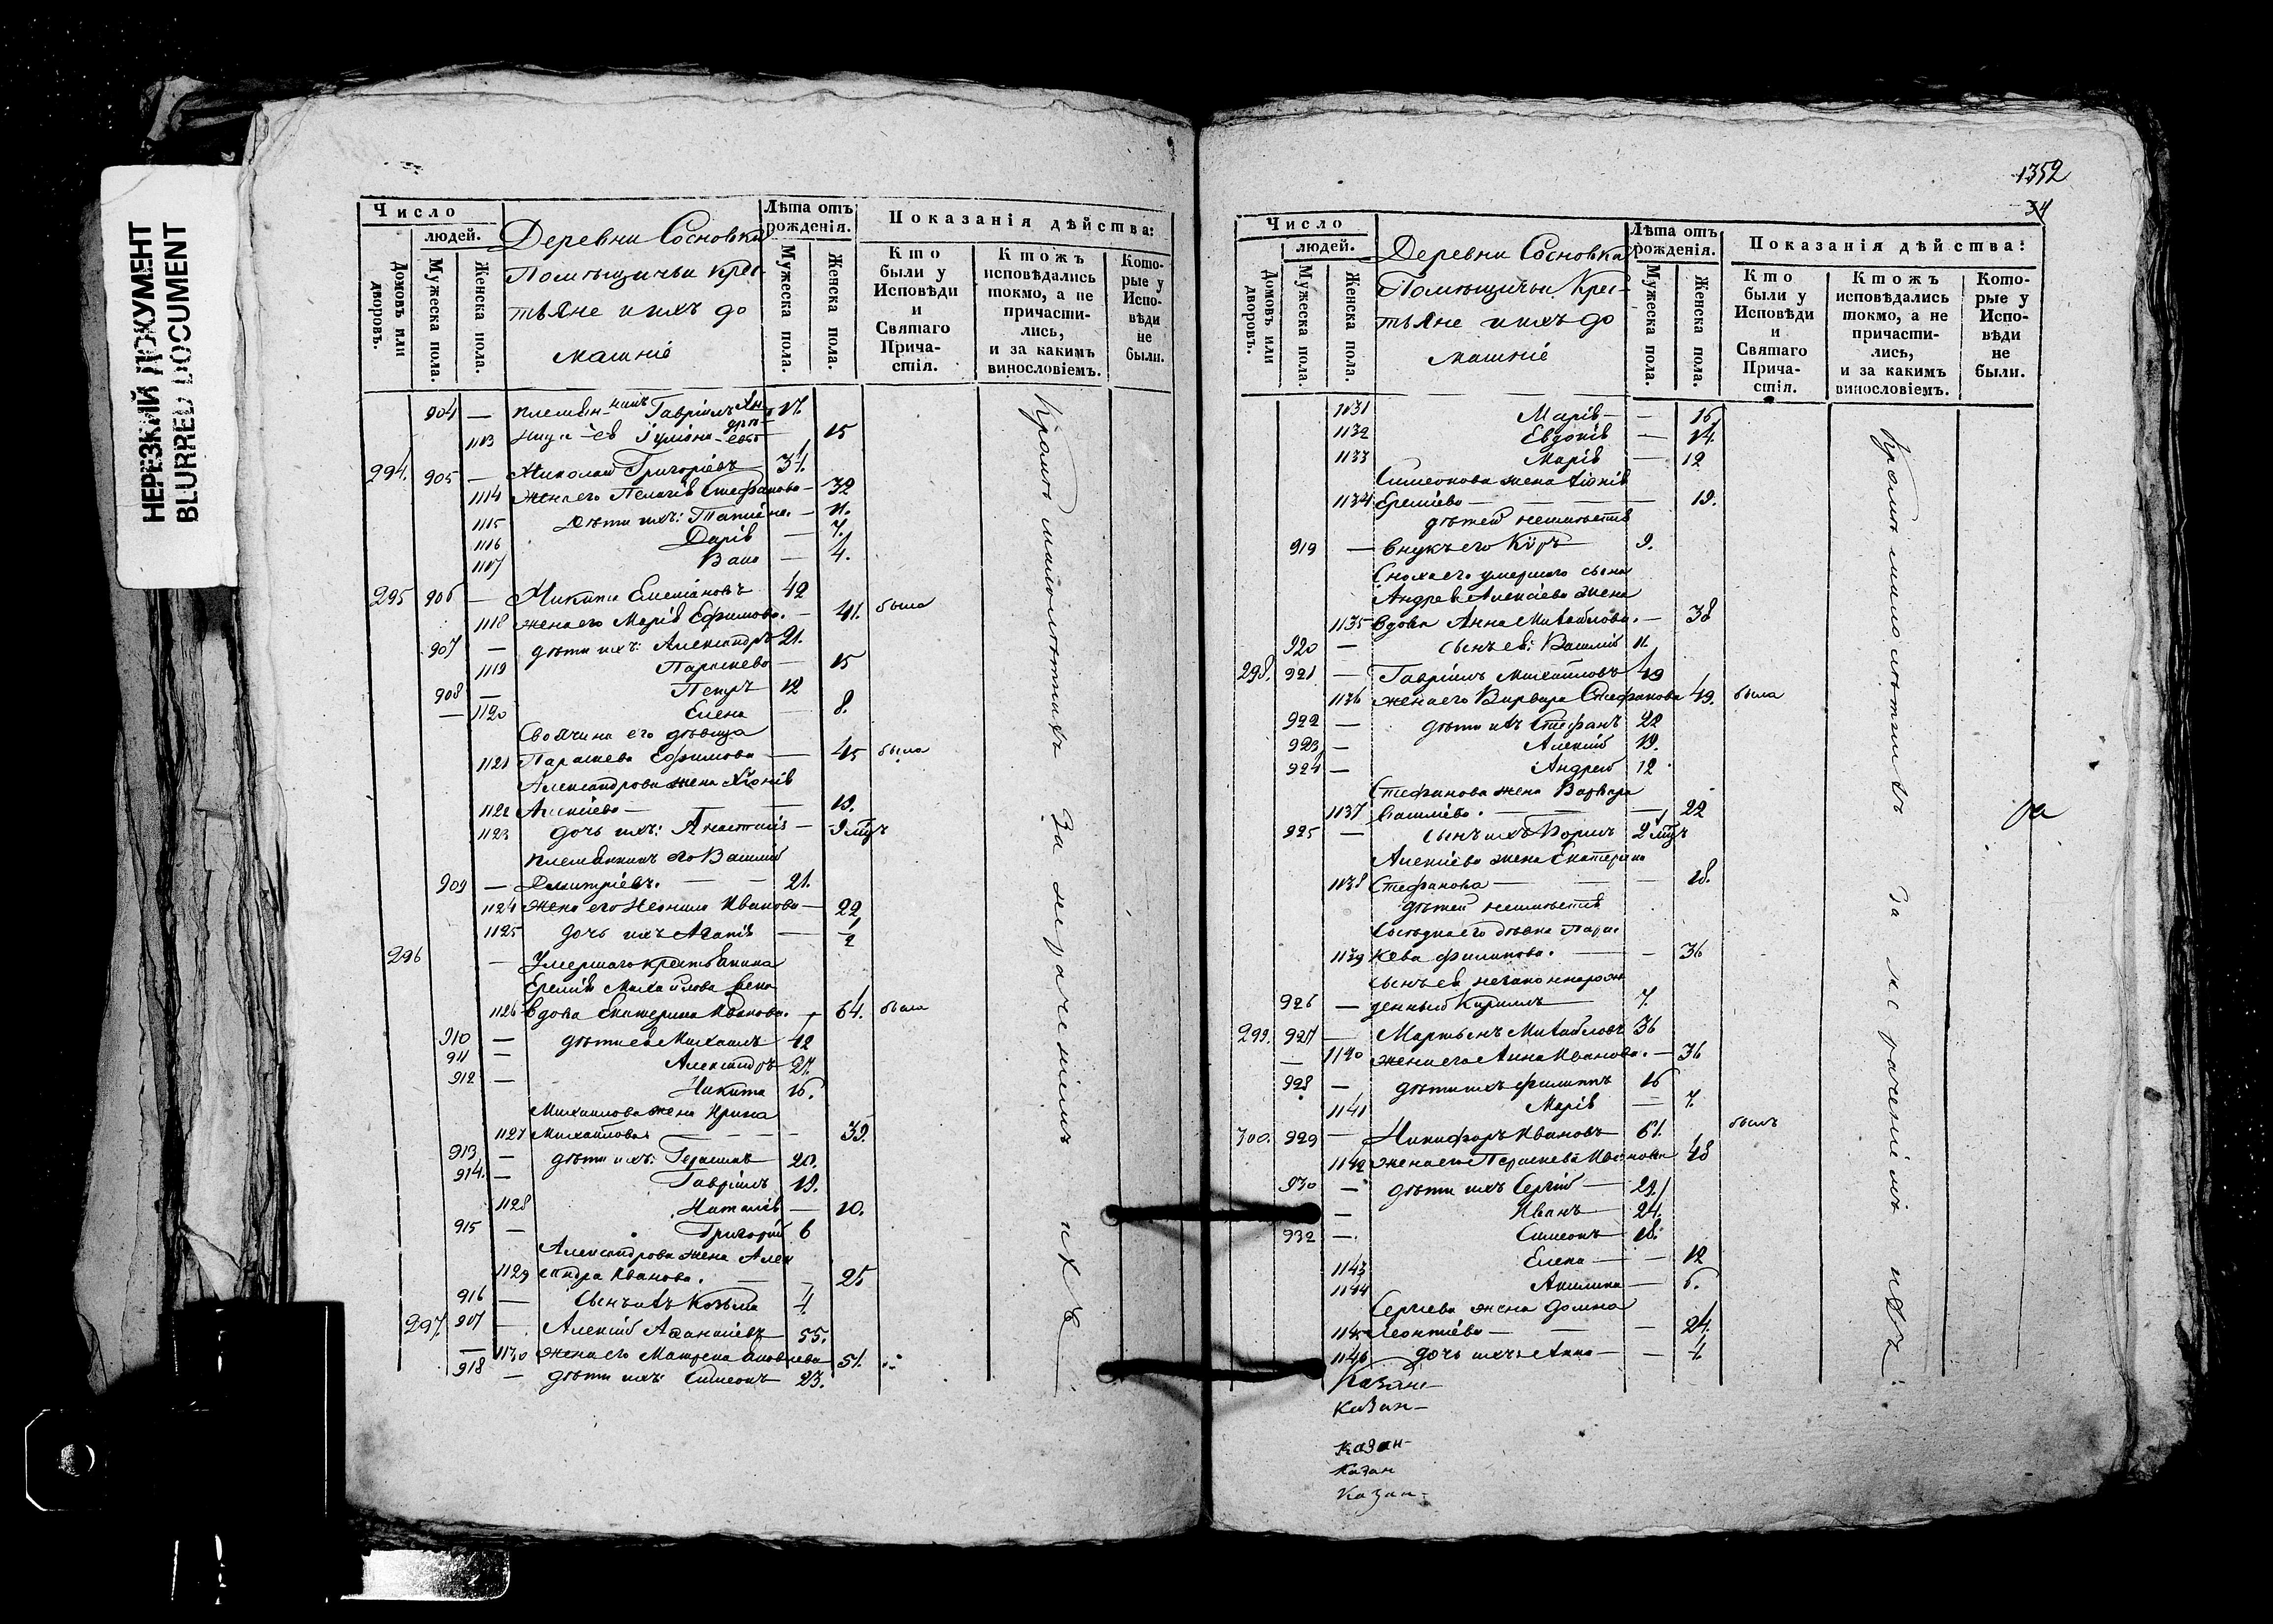 НЕРЕЗКИЙ ДОКУМЕНТ
BLURRED DOCUMENT
Число
людей.
Домовъ или дворовъ.
Мужеска пола.
Женска пола.
Деревни Сосновки
Помѣщичьи Крес-
тьяне и ихъ до
машніе
Лѣта отъ рожденія.
Мужеска пола.
Женска пола.
Показанія дѣйства:
Кто были у Исповѣди и Святаго Причастія.
Ктожъ исповѣдались токмо, а не причастились, и за какимъ винословіемъ.
Которые у Исповѣди не были.
904 — племян-никъ Гавріилъ 17.
1113 15
294. 905 — Николай Григоріевъ 34.
1114 жена его Пелагія Стефанова — 32
1115 дѣти ихъ: Татіана — 11.
1116 Дарія — 7.
1117 Васа — 4.
295 906 — Никита Емеліановъ 42
1118 жена его Марія Ефимова. — 41. была
907 — дѣти ихъ: Александръ 21.
1119 Параскева — 15
908 — Петръ 12
1120 Елена — 8.
Своячина его дѣвица
1121 Параскева Ефимова — 45 была
Александрова жена Хіонія
1122 Алексіева — 19.
1123 дочь ихъ: Анастасія —
племянникъ его Василій
909 — Димитріевъ. 21.
1124 жена его Неонила Иванова — 22
1125 дочь ихъ Агапія — 1/2
296 — Умершаго крестьянина
Еремія Михайлова жена
1126 вдова Екатерина Иванова. 64. была
910 — дѣти ея Михаилъ 42
911 — Александръ 27.
912 — Никита 16.
Михаилова жена Ирина
1127 Михайлова — 39.
913 — дѣти ихъ: Герасимъ 20.
914. — Гавріилъ 19.
1128 Наталія — 10.
915 — Григорій 6
Александрова жена Алек
1129 сандра Иванова. — 25
916 — сынъ ихъ Козьма 4.
297. 917 — Алексій Аѳанасіевъ 55.
1130 жена его Матрена Яковлева 51.
918 — дѣти ихъ: Симеонъ 23.
Кромѣ малолѣтнихъ за нераченіемъ ихъ
1352
34
Число
людей.
Домовъ или дворовъ.
Мужеска пола.
Женска пола.
Деревни Сосновки
Помѣщичьи Крес-
тьяне и ихъ до
машніе
Лѣта отъ рожденія.
Мужеска пола.
Женска пола.
Показанія дѣйства:
Кто были у Исповѣди и Святаго Причастія.
Ктожъ исповѣдались токмо, а не причастились, и за какимъ винословіемъ.
Которые у Исповѣди не были.
1131 Марія — 16
1132 Евдокія — 14.
1133 Марія — 12
Симеонова жена Хіонія
1134 Еремеева — 19.
дѣтей неимѣетъ
919 — внукъ его Киръ 9.
Сноха его умершаго сына
Андрея Алексіева жена
1135 вдова Анна Михайлова. — 38
920 — сынъ ея: Василій 11.
298. 921 — Гавріилъ Михайловъ 49
1136 жена его Варвара Стефанова 49. была
922 — дѣти ихъ Стефанъ 22
923 — Алексій 19.
924 — Андрей 12
Стефанова жена Варвара
1137 Василіева. — 22
925 — сынъ ихъ Борисъ
Алексіева жена Екатерина
1138 Стефанова — 18.
дѣтей неимѣетъ
Сосѣдка его дѣвка Парас
1139 кева Филипова. — 36
сынъ ея незаконнорож
926 — денный Кириллъ 7.
299. 927 — Мартынъ Михайловъ 36
1140 жена его Анна Иванова. — 36
928 — дѣти ихъ Филиппъ 16
1141 Марія — 7.
300. 929 — Никифоръ Ивановъ 61. былъ
1142 жена его Параскева Иванова 48
930 — дѣти ихъ Сергій — 29.
— Иванъ — 24.
932 — Симеонъ 18.
1143 Елена — 12
1144 Акилина — 6.
Сергіева жена Домна
1145 Леонтіева — 24.
1146 дочь ихъ: Анна — 4.
Кромѣ малолѣтнихъ за нераченіемъ ихъ
Казан-
Казан-
Казан-
Казан
Казан-